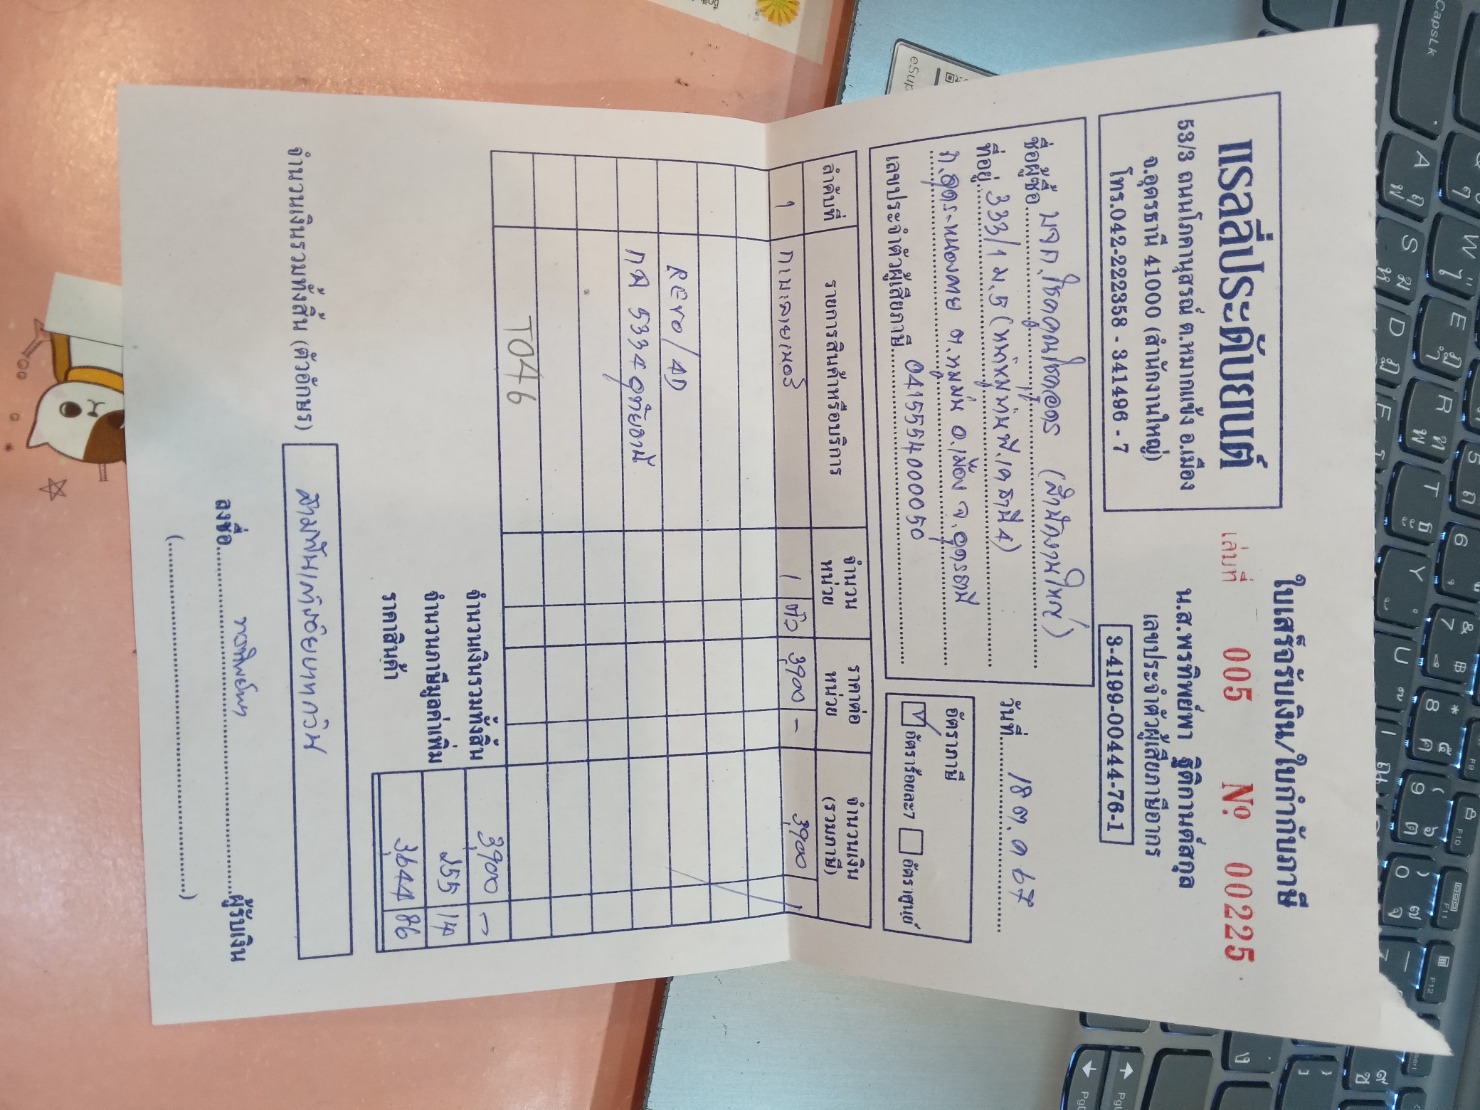 ใบเสร็จรับเงิน/ใบกำกับภาษี
แรลลี่ประดับยนต์
53/3 ถนนโภคานุสรณ์ ต.หมากแข้ง อ.เมือง
จ.อุดรธานี 41000 (สำนักงานใหญ่)
โทร.042-222358 - 341496 - 7
เล่มที่ 005 Nº 00225
น.ส.พรทิพย์พา ฐิติกานต์สกุล
เลขประจำตัวผู้เสียภาษีอากร
3-4199-00444-76-1
วันที่ 18 ต.ค 67
ชื่อผู้ซื้อ หจก.โชคคูณโชคอุดร (สำนักงานใหญ่)
ที่อยู่ 333/1 ม.5 (หมู่บ้าน พี.เค ธานี 4)
ถ.อุดร-หนองคาย ต.หมูม่น อ.เมือง จ.อุดรธานี
เลขประจำตัวผู้เสียภาษี 0415554000050
อัตราภาษี
อัตราร้อยละ7 อัตราศูนย์
ลำดับที่ รายการสินค้าหรือบริการ จำนวนหน่วย ราคาต่อหน่วย จำนวนเงิน (รวมภาษี)
1 1 ตัว 3,900 - 3,900 -
REVO/4D
5334 อุทัยธานี
T046
จำนวนเงินรวมทั้งสิ้น 3,900 -
จำนวนภาษีมูลค่าเพิ่ม 255 14
ราคาสินค้า 3,644 86
จำนวนเงินรวมทั้งสิ้น (ตัวอักษร) สามพันเก้าร้อยบาทถ้วน
ลงชื่อ ผู้รับเงิน
CapsLk